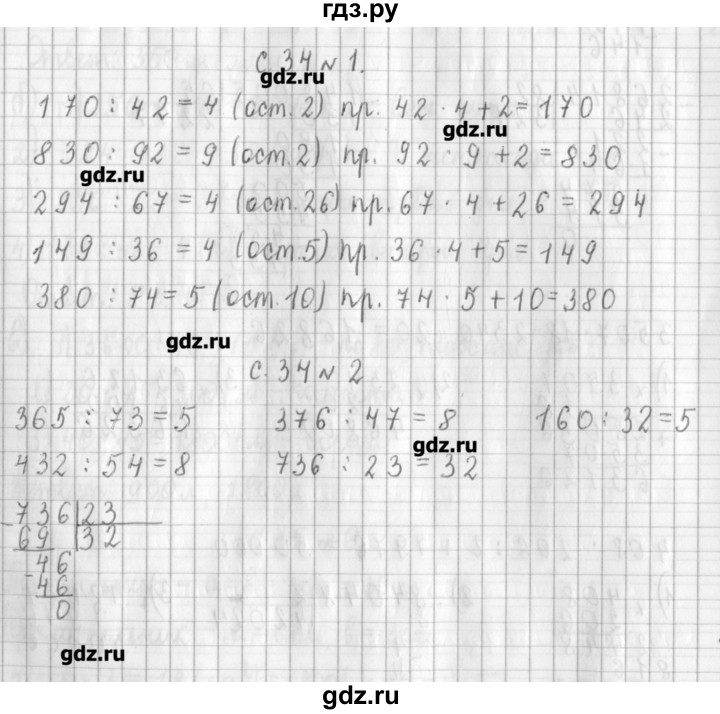 гдз.ру
с. 34 № 1.
gdz.ru
170 : 42 = 4 (ост. 2) пр. 42 · 4 + 2 = 170
gdz.ru
830 : 92 = 9 (ост. 2) пр. 92 · 9 + 2 = 830
gdz.ru
294 : 67 = 4 (ост. 26) пр. 67 · 4 + 26 = 294
149 : 36 = 4 (ост. 5) пр. 36 · 4 + 5 = 149
380 : 74 = 5 (ост. 10) пр. 74 · 5 + 10 = 380
gdz.ru
с. 34 № 2
365 : 73 = 5 376 : 47 = 8 160 : 32 = 5
gdz.ru
432 : 54 = 8 736 : 23 = 32
736 | 23
- 69 | 32
46
- 46
0
gdz.ru
gdz.ru